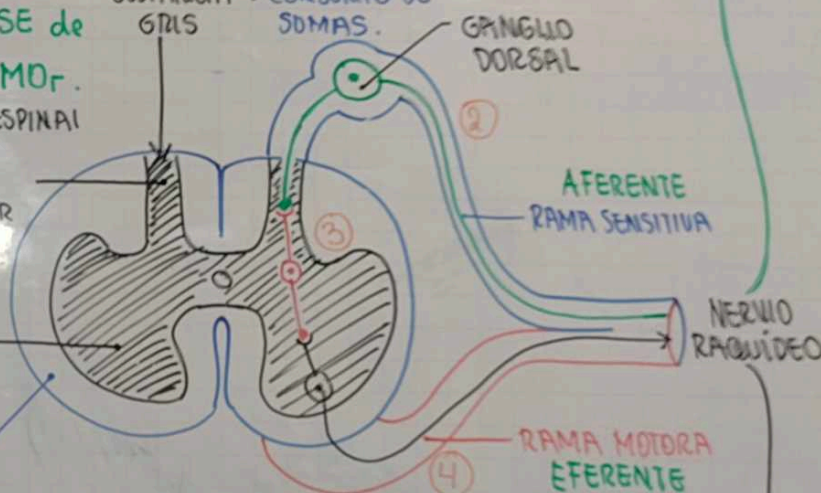 SE de
MOr.
ESPINAl
R
GRIS
SOMAS.
GANGLIO
DORSAL
2
AFERENTE
RAMA SENSITIVA
3
NERVIO
RAQUÍDEO
RAMA MOTORA
EFERENTE
4